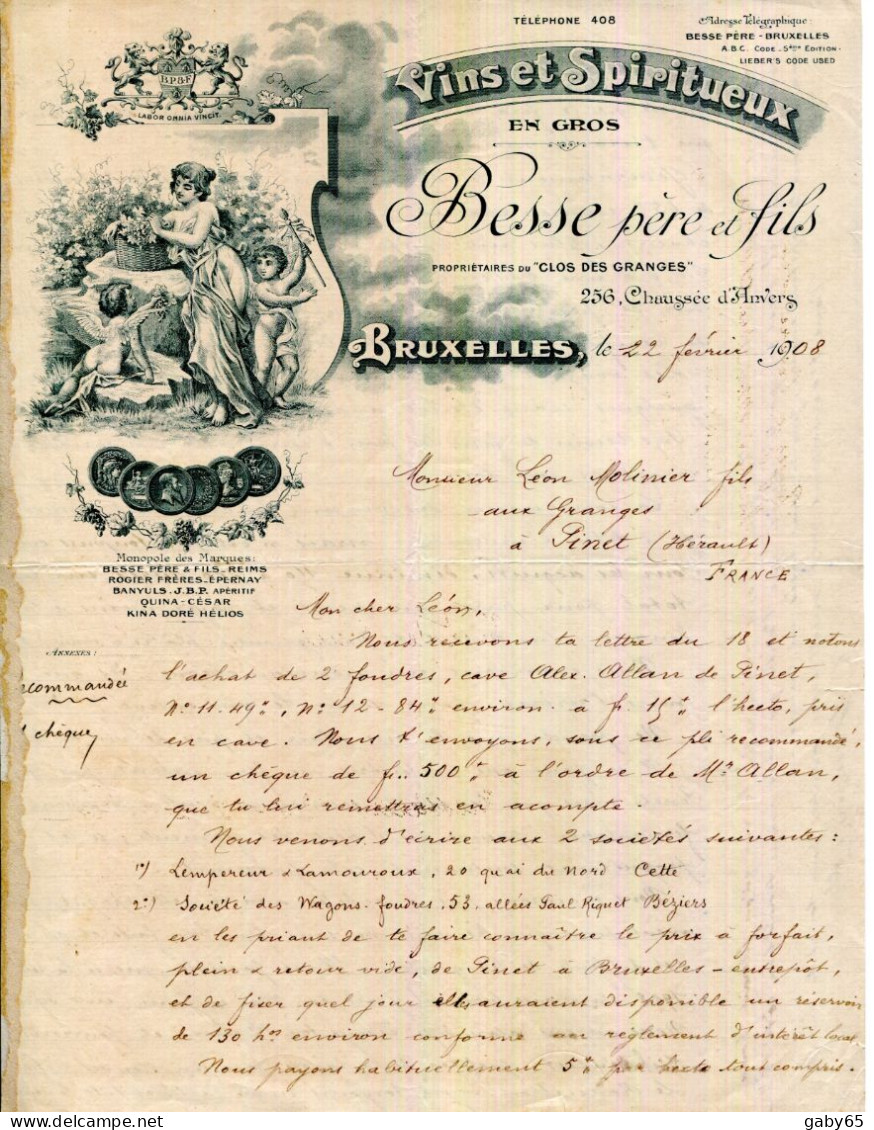 TÉLÉPHONE 408
Adresse Télégraphique:
BESSE PÈRE - BRUXELLES
A.B.C. CODE - 5ème EDITION -
LIEBER'S CODE USED
B.P.&F.
LABOR OMNIA VINCIT.
Vins et Spiritueux
EN GROS
Besse père et fils
PROPRIÉTAIRES DU "CLOS DES GRANGES"
256, Chaussée d'Anvers
BRUXELLES, le 22 février 1908
Monsieur Léon Molinier fils
aux Granges
à Pinet (Hérault)
FRANCE
Monopole des Marques:
BESSE PÈRE & FILS - REIMS
ROGIER FRÈRES - ÉPERNAY
BANYULS - J.B.P. APÉRITIF
QUINA - CÉSAR
KINA DORÉ HÉLIOS
Mon cher Léon,
ANNEXES:
commandée
chèque
Nous recevons ta lettre du 18 et notons
l'achat de 2 foudres, cave Alex. Allan de Pinet,
No 11. 49 hos, No 12 - 84 hos environ à fr. 15 ts l'hecto, pris
en cave. Nous t'envoyons, sous ce pli recommandé,
un chèque de fr. 500 ts à l'ordre de Mr Allan,
que tu lui remettras en acompte.
Nous venons d'écrire aux 2 sociétés suivantes:
1o) Lempereur & Lamouroux, 20 quai du Nord Cette
2o) Société des Wagons-foudres. 53, allées Paul Riquet Béziers
en les priant de te faire connaître le prix à forfait,
plein & retour vide, de Pinet à Bruxelles - entrepôt,
et de fixer quel jour elles auraient disponible un réservoir
de 130 hos environ conforme au règlement d'intérêt local.
Nous payons habituellement 5 ts par hecto tout compris.
gaby65